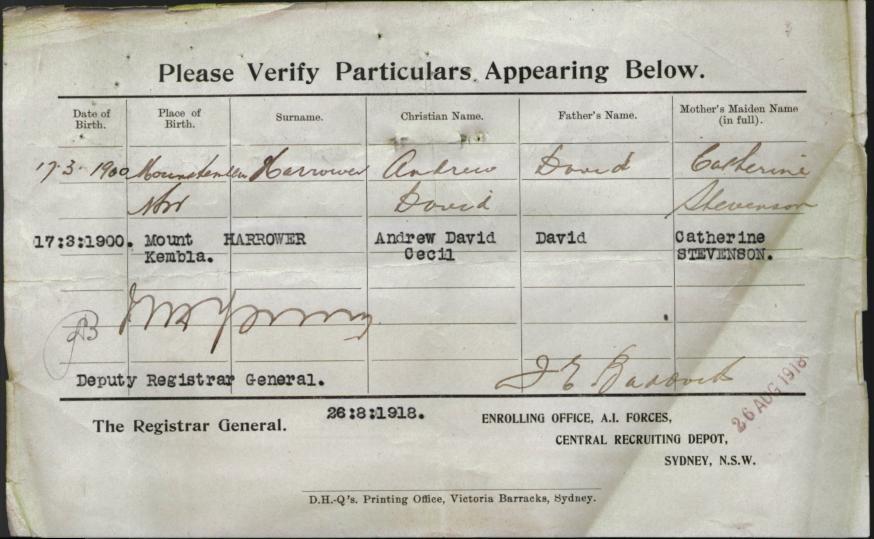 Please Verify Particulars Appearing Below.
Date of Birth. Place of Birth. Surname. Christian Name. Father's Name. Mother's Maiden Name (in full).
17·3·1900 Harrower Andrew David Catherine
NSW David Stevenson
17:3:1900. Mount HARROWER Andrew David David Catherine
Kembla. Cecil STEVENSON.
AB
Deputy Registrar General.
J E
26 AUG 1918
The Registrar General. 26:8:1918. ENROLLING OFFICE, A.I. FORCES,
CENTRAL RECRUITING DEPOT,
SYDNEY, N.S.W.
D.H.-Q's. Printing Office, Victoria Barracks, Sydney.